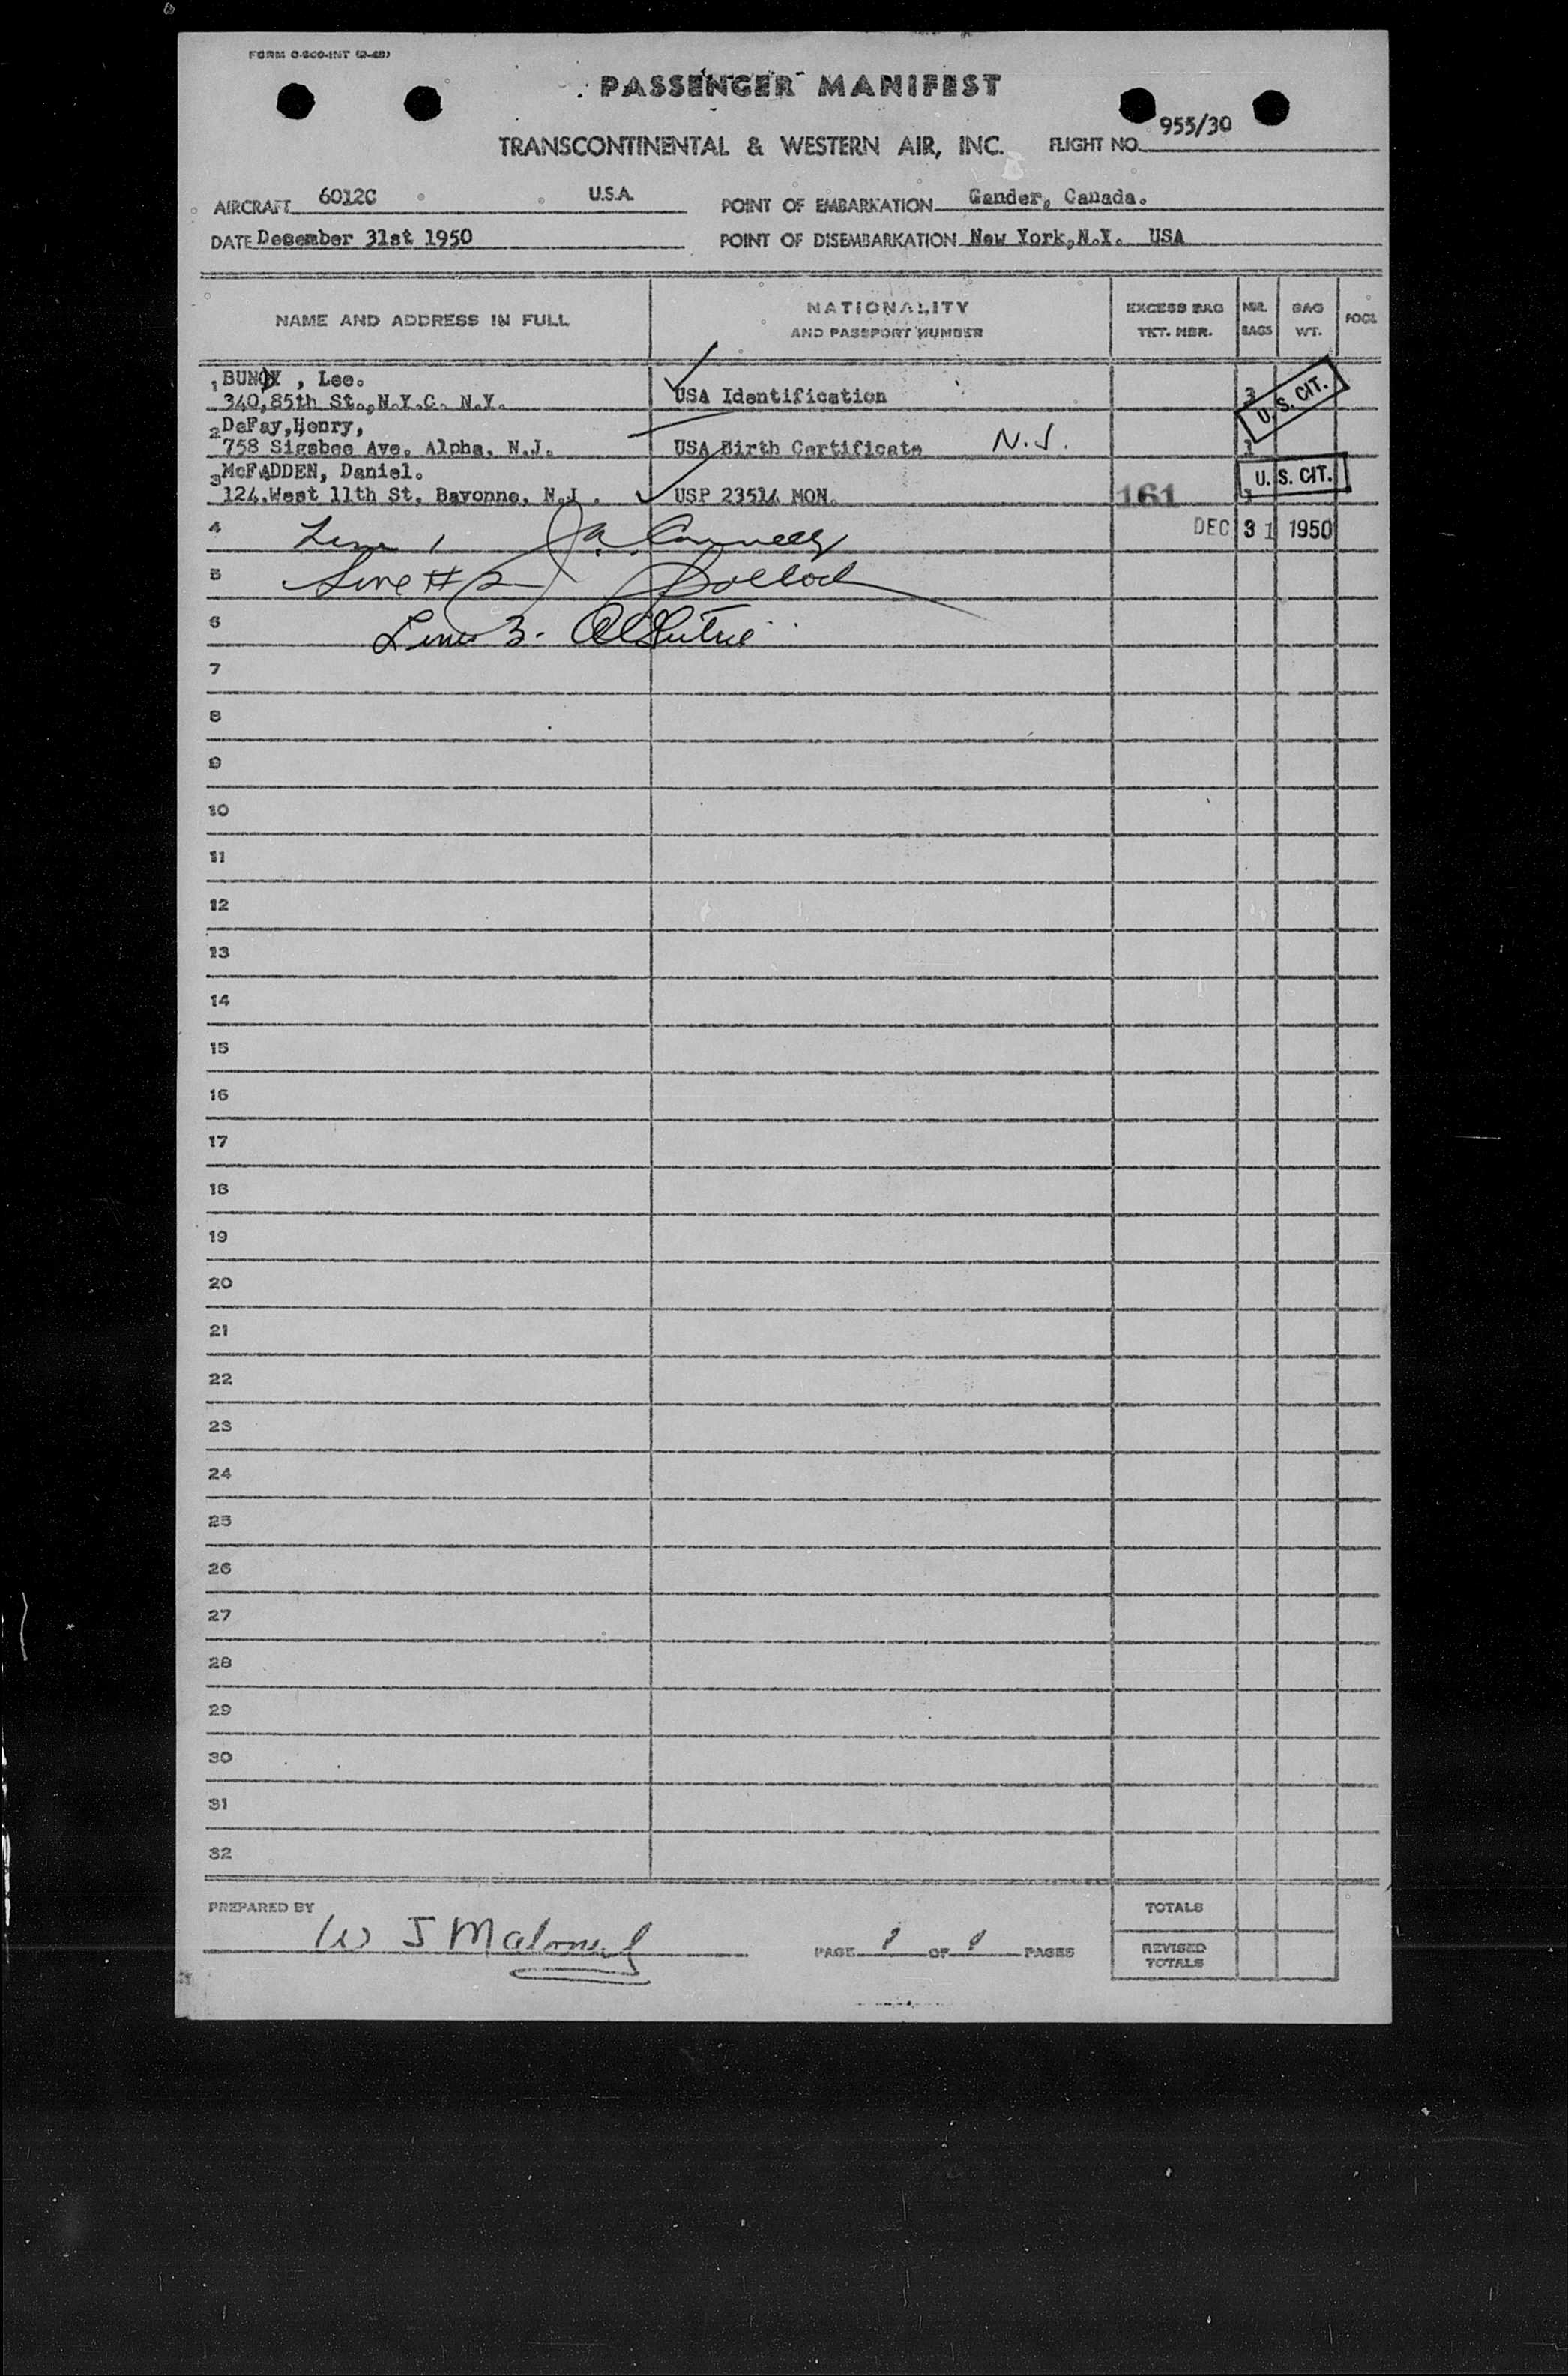 FORM O-800-INT (2-48)
PASSENGER MANIFEST
TRANSCONTINENTAL & WESTERN AIR, INC. FLIGHT NO. 955/30
AIRCRAFT 6012C U.S.A. POINT OF EMBARKATION Gander, Canada.
DATE December 31st 1950 POINT OF DISEMBARKATION New York,N.Y. USA
NAME AND ADDRESS IN FULL NATIONALITY AND PASSPORT NUMBER EXCESS BAG TKT. NBR. NBR. BAGS BAG WT.
1 , Lee.
340,85th St.,N.Y.C. N.Y. USA Identification 3 U.S. CIT.
2 DeFay,Henry,
758 Sigsbee Ave. Alpha, N.J. USA Birth Certificate N.J. 1
3 McFADDEN, Daniel.
124.West 11th St. Bayonne, N.J. USP 23514 MON. 161 U.S. CIT.
4 Line 1 DEC 31 1950
5 Line #2 Pollock
6 Line 3.
7
8
9
10
11
12
13
14
15
16
17
18
19
20
21
22
23
24
25
26
27
28
29
30
31
32
PREPARED BY W J TOTALS
PAGE 1 OF 1 PAGES REVISED TOTALS